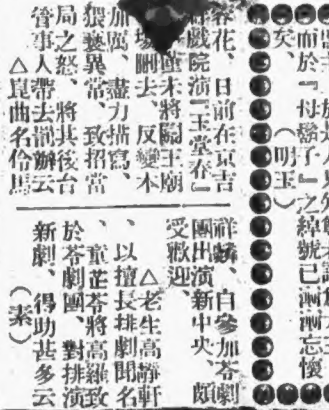 而於『母騷子』之綽號已漸漸忘懷
矣、（明玉）
花、日前在京吉
戲院演『玉堂春』
僅未將關王廟
場刪去、反變本
加厲、盡力描寫、
猥褻異常、致招當
局之怒、將其後台
管事人帶去罰辦云
△崑曲名伶馬
祥麟、自參加苓劇
團出演新中央、頗
受歡迎、
△老生高靜軒
、以擅長排劇聞名
、童芷苓將高羅致
於苓劇團、對排演
新劇、得助甚多云
（素）